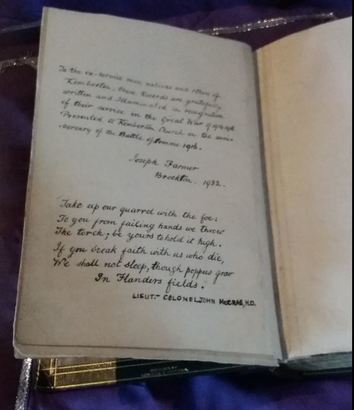 To the ex-service men, natives and others of
Kemberton, these Records are gratefully
written and Illuminated in recognition
of their service in the Great War of 1914-18.
Presented to Kemberton Church on the anni-
versary of the Battle of Somme 1916.
Joseph Farmer
Brockton, 1932.
Take up our quarrel with the foe:
To you from failing hands we throw
The torch; be yours to hold it high.
If you break faith with us who die,
We shall not sleep, though poppies grow
In Flanders fields.
LIEUT- COLONEL JOHN McCRAE, M.D.